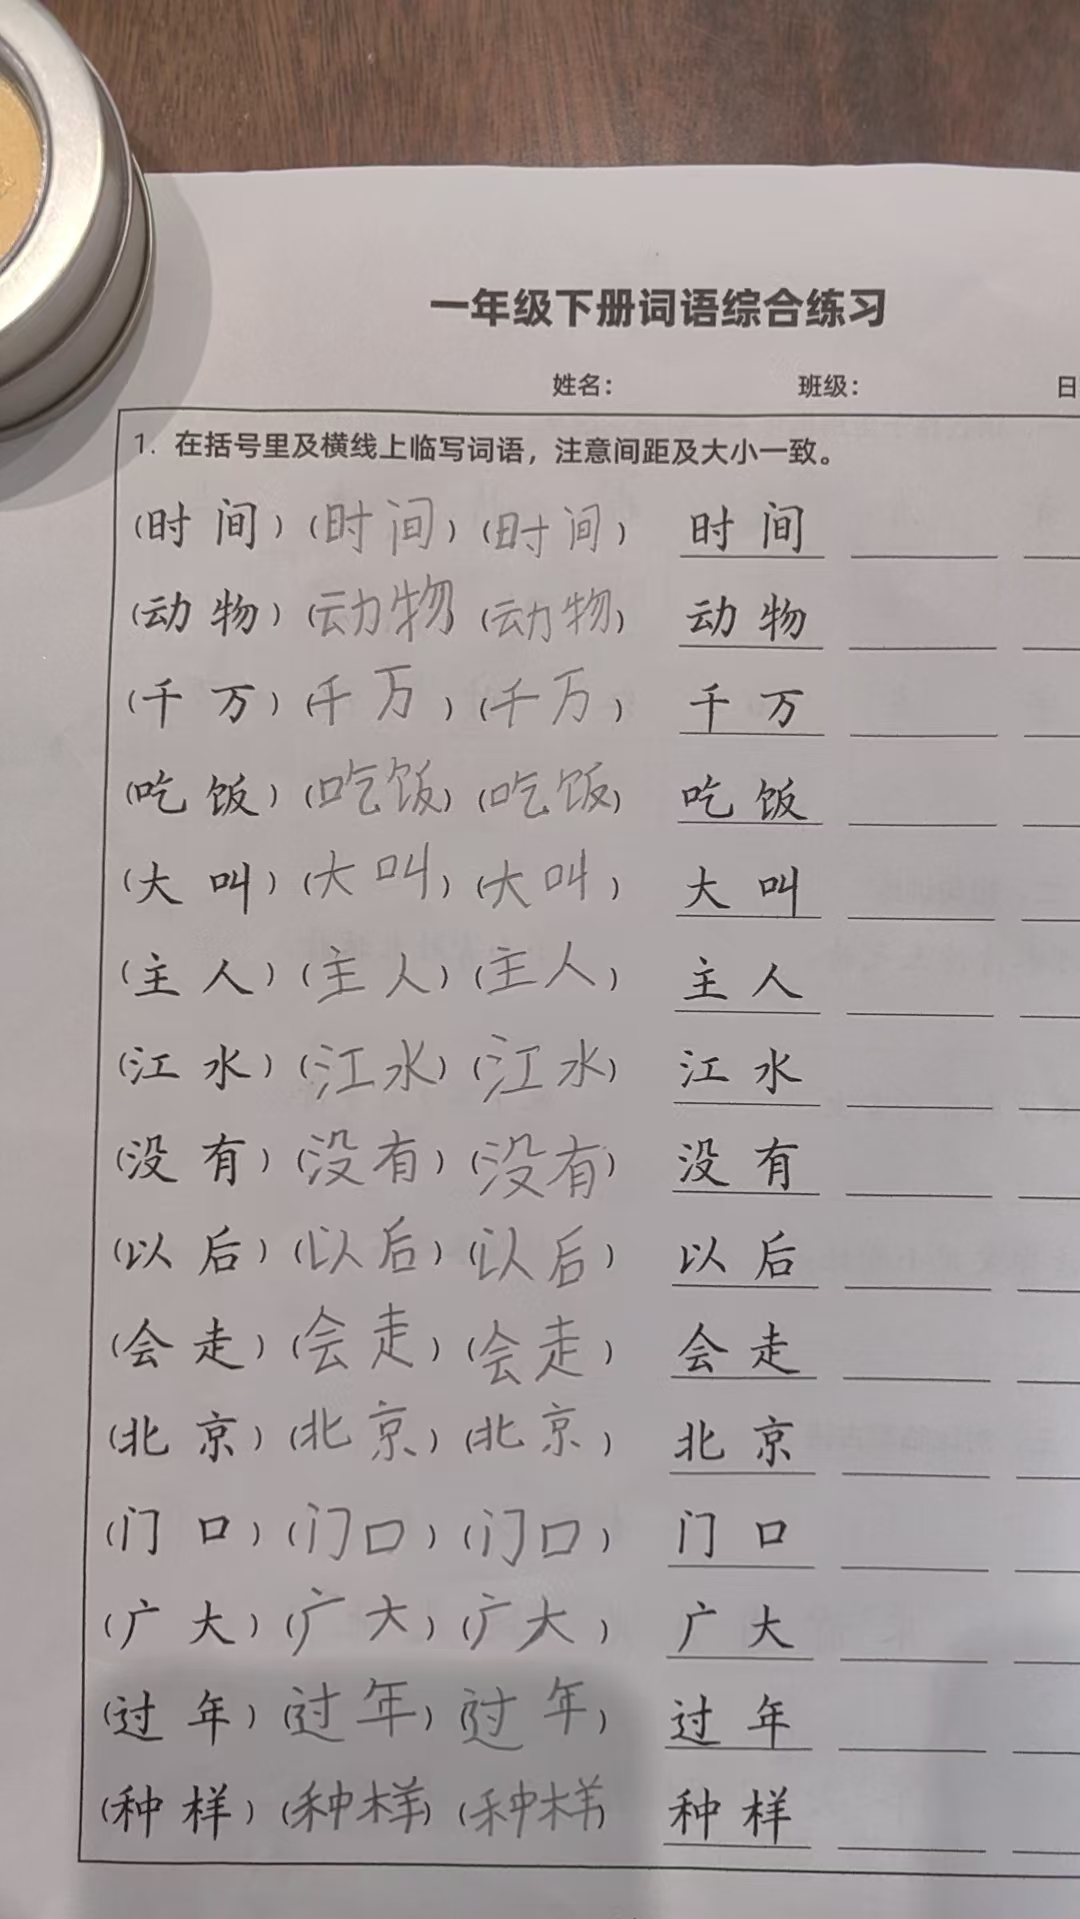 一年级下册词语综合练习
姓名： 班级： 日
1. 在括号里及横线上临写词语，注意间距及大小一致。
（时间）（时间）（时间） 时间
（动物）（动物）（动物） 动物
（千万）（千万）（千万） 千万
（吃饭）（吃饭）（吃饭） 吃饭
（大叫）（大叫）（大叫） 大叫
（主人）（主人）（主人） 主人
（江水）（江水）（江水） 江水
（没有）（没有）（没有） 没有
（以后）（以后）（以后） 以后
（会走）（会走）（会走） 会走
（北京）（北京）（北京） 北京
（门口）（门口）（门口） 门口
（广大）（广大）（广大） 广大
（过年）（过年）（过年） 过年
（种样）（种样）（种样） 种样